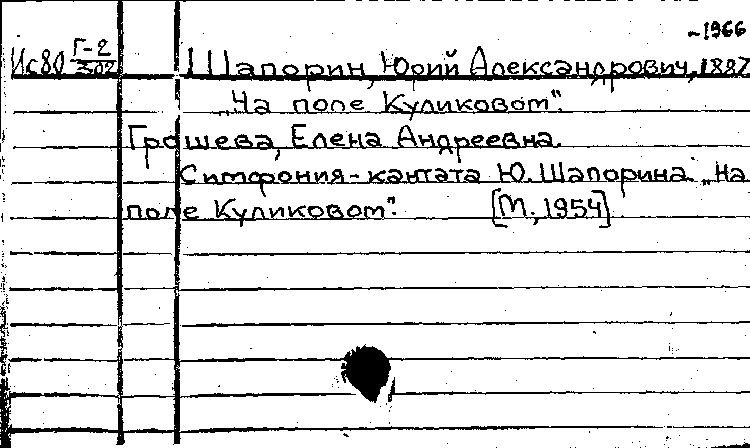 -1966
Ис80 Г-2/302 Шапорин, Юрий Александрович, 1887
„На поле Куликовом".
Грошева, Елена Андреевна.
Симфония-кантата Ю. Шапорина „На
поле Куликовом". [М., 1954]